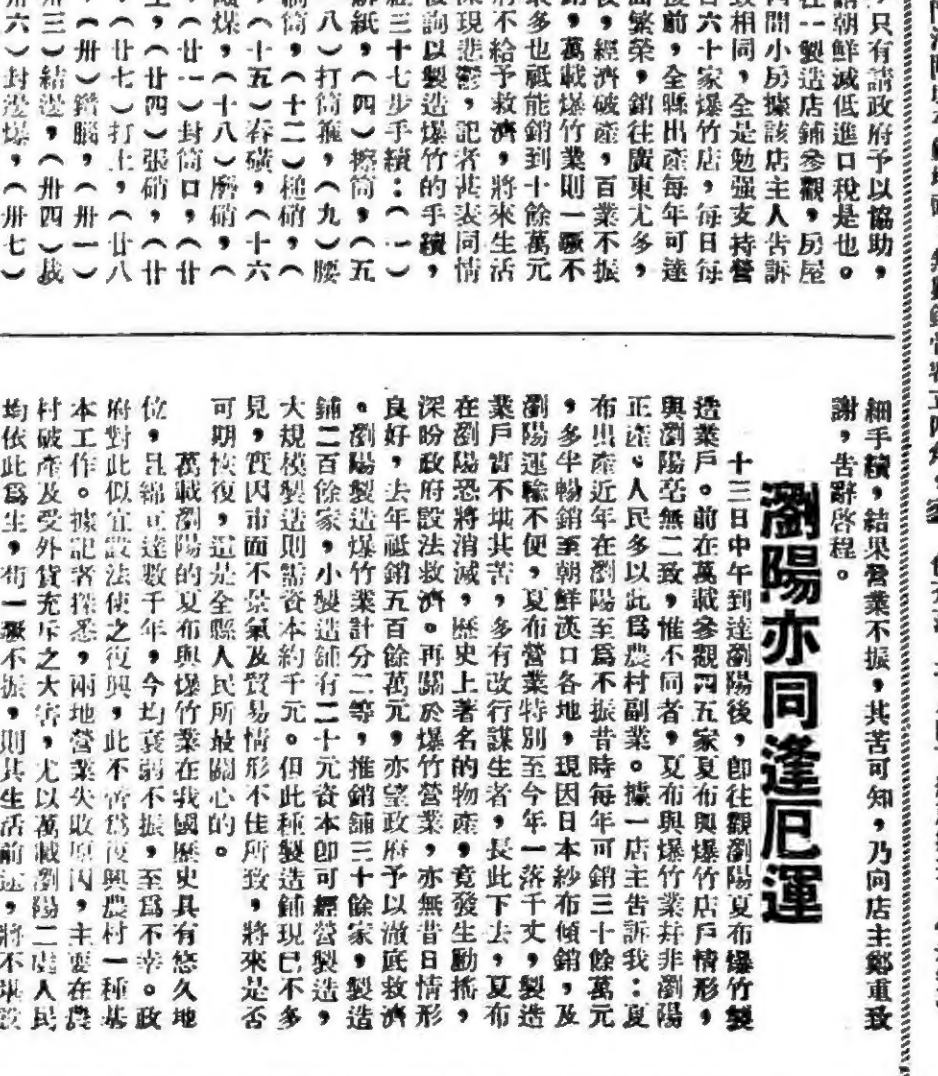 只有請政府予以協助，
請朝鮮減低進口稅是也。
往一製造店鋪參觀，房屋
間小房據該店主人告訴
致相同，全是勉强支持營
六十家爆竹店，每日每
後前，全縣出產每年可達
繁榮，銷往廣東尤多，
，經濟破產，百業不振
，萬載爆竹業則一蹶不
多也祗能銷到十餘萬元
不給予救濟，將來生活
現悲鬱，記者甚表同情
後詢以製造爆竹的手續，
三十七步手續：（一）
紙，（四）擦筒，（五
八）打筒箍，（九）腰
筒，（十二）槌硝，
（十五）舂磺，（十六
煤，（十八）磨硝，（
（廿一）封筒口，（廿
，（廿四）張硝，（廿
（廿七）打土，（廿八
（卅）鑽腦，（卅一）
三）結邊，（卅四）
六）封邊爆，（卅七）
細手續，結果營業不振，其苦可知，乃向店主鄭重致
謝，告辭啓程。
瀏陽亦同逢厄運
十三日中午到達瀏陽後，卽往觀瀏陽夏布爆竹製
造業戶。前在萬載參觀四五家夏布與爆竹店戶情形，
與瀏陽毫無二致，惟不同者，夏布與爆竹業幷非瀏陽
正產。人民多以此爲農村副業。據一店主告訴我：夏
布出產近年在瀏陽至爲不振昔時每年可銷三十餘萬元
，多半暢銷至朝鮮漢口各地，現因日本紗布傾銷，及
瀏陽運輸不便，夏布營業特別至今年一落千丈，製造
業戶實不堪其苦，多有改行謀生者，長此下去，夏布
在瀏陽恐將消滅，歷史上著名的物產，竟發生動搖，
深盼政府設法救濟。再關於爆竹營業，亦無昔日情形
良好，去年祗銷五百餘萬元，亦望政府予以澈底救濟
。瀏陽製造爆竹業計分二等，推銷鋪三十餘家，製造
鋪二百餘家，小製造鋪有二十元資本卽可經營製造，
大規模製造則需資本約千元。但此種製造鋪現已不多
見，實因市面不景氣及貿易情形不佳所致，將來是否
可期恢復，這是全縣人民所最關心的。
萬載瀏陽的夏布與爆竹業在我國歷史具有悠久地
位，且綿亘達數千年，今均衰弱不振，至爲不幸。政
府對此似宜設法使之復興，此不啻爲復興農村一種基
本工作。據記者探悉，兩地營業失敗原因，主要在農
村破產及受外貨充斥之大害，尤以萬載瀏陽二處人民
均依此爲生，苟一蹶不振，則其生活前途，將不堪設